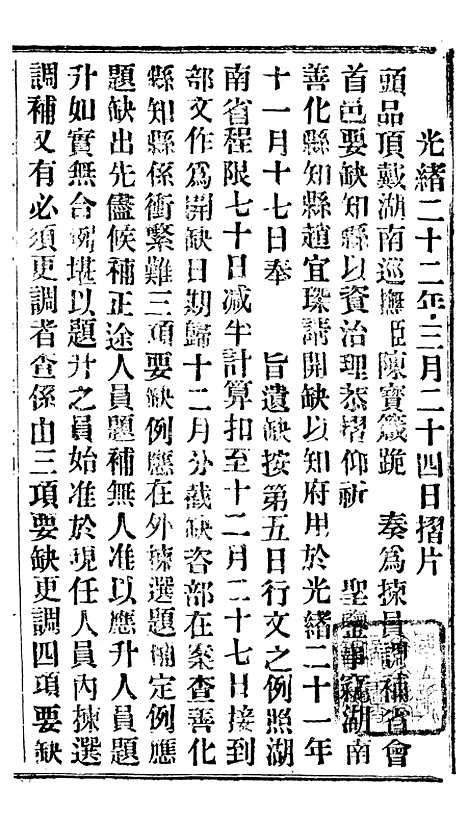 光緒二十二年三月二十四日摺片
頭品頂戴湖南巡撫臣陳寶箴跪　奏爲揀員調補省會
首邑要缺知縣以資治理恭摺仰祈　聖鑒事竊湖南
善化縣知縣趙宜琛請開缺以知府用於光緒二十一年
十一月十七日奉　旨遺缺按第五日行文之例照湖
南省程限七十日減半計算扣至十二月二十七日接到
部文作爲開缺日期歸十二月分截缺咨部在案查善化
縣知縣係衝繁難三項要缺例應在外揀選題補定例應
題缺出先儘候補正途人員題補無人准以應升人員題
升如實無合例堪以題升之員始准於現任人員內揀選
調補又有必須更調者查係由三項要缺更調四項要缺